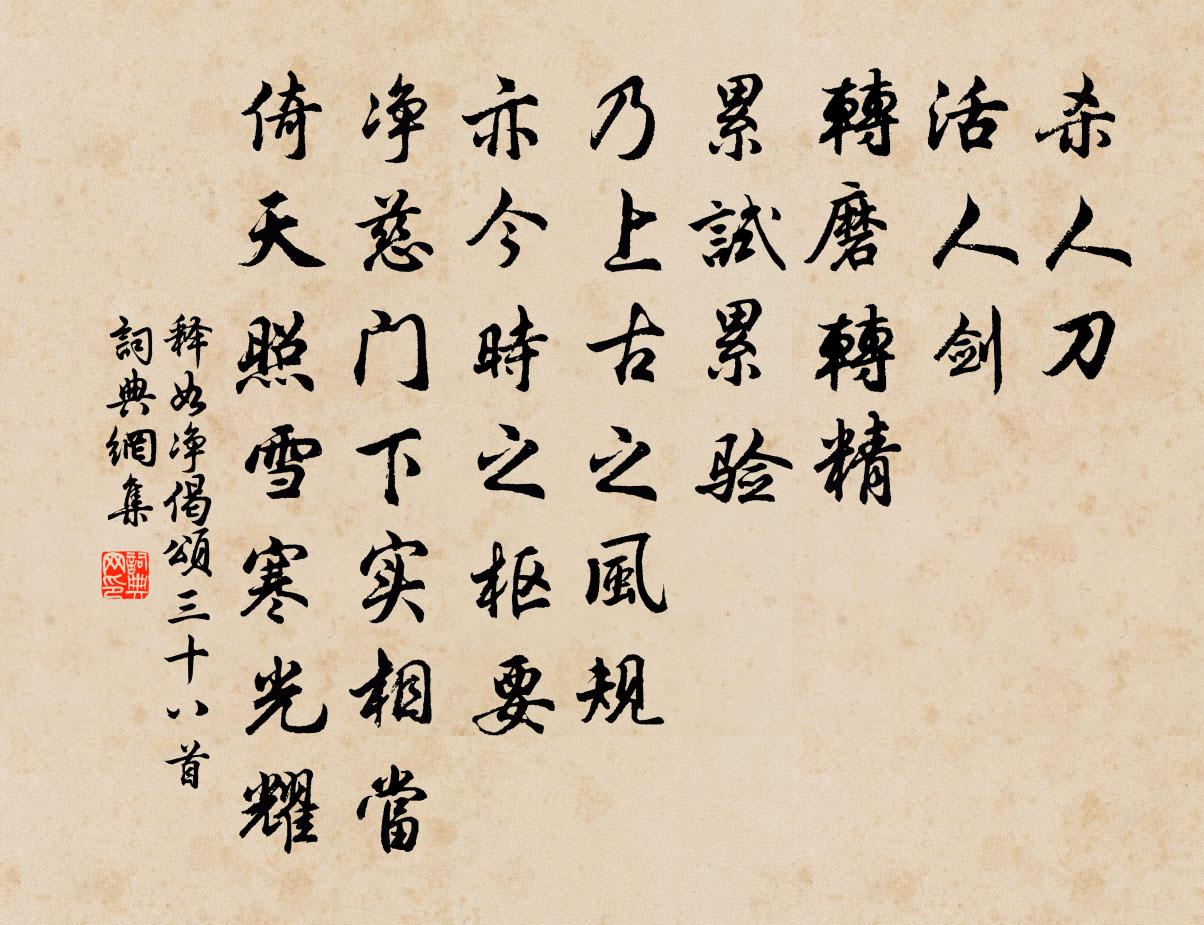 杀人刀
活人剑
轉磨轉精
累試累验
乃上古之風規
亦今時之枢要
净慈门下实相當
倚天照雪寒光耀
释如净偈頌三十八首
詞典網集
詞典
网印